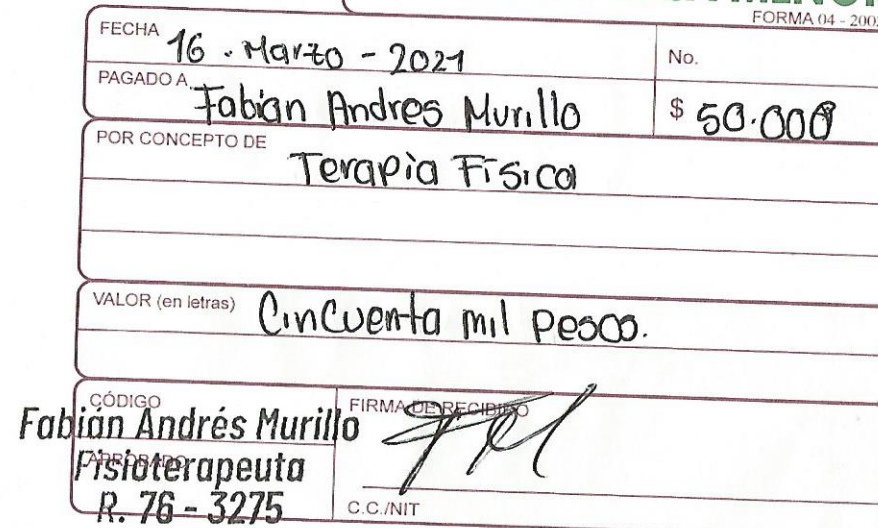 FORMA 04 - 2002
FECHA 16 - Marzo - 2021
No.
PAGADO A Fabian Andres Murillo
$ 50.000
POR CONCEPTO DE Terapia Física
VALOR (en letras) Cincuenta mil pesos.
CÓDIGO
FIRMA DE RECIBIDO
Fabián Andrés Murillo
APROBADO
Fisioterapeuta
R. 76 - 3275
C.C./NIT